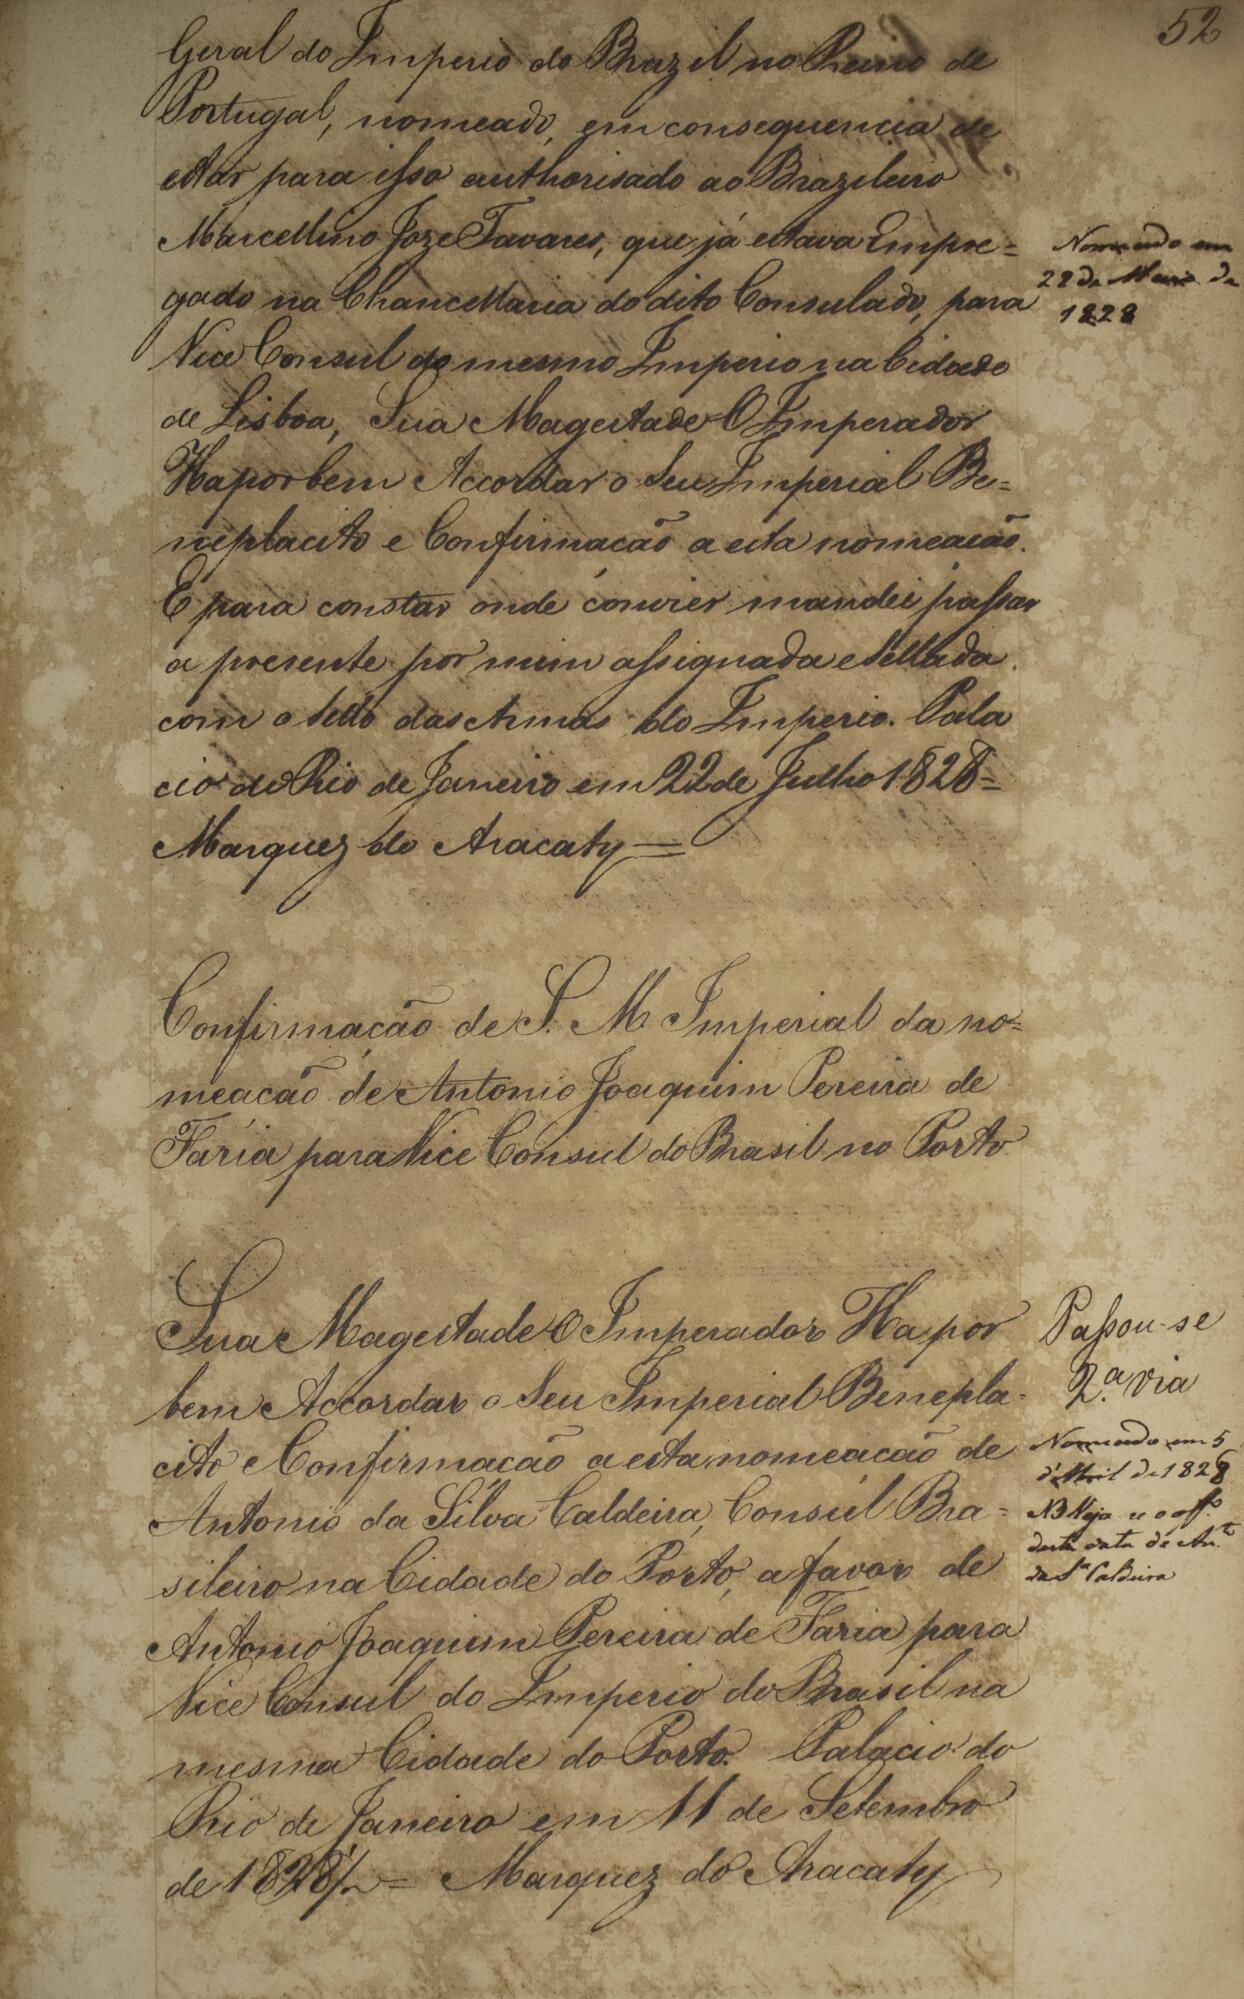 52
Geral do Imperio do Brazil no Reino de
Portugal, nomeado, em consequencia de
estar para isso authorisado ao Brazileiro
Marcellino Joze Tavares, que já estava Empre=
gado na Chancellaria do dito Consulado, para
Vice Consul do mesmo Imperio na Cidade
de Lisboa, Sua Magestade O Imperador
Ha por bem Accordar o Seu Imperial Be=
neplacito e Confirmacão a esta nomeacão.
E para constar onde convier mandei passar
a presente por mim assignada e sellada
com o sello das Armas do Imperio. Pala
cio do Rio de Janeiro em 22 de Julho 1828=
Marquez do Aracaty=
Nomeado em
28 de Maio de
1828
Confirmação de S. M. Imperial da no=
meacão de Antonio Joaquim Pereira de
Faria para Vice Consul do Brasil no Porto
Sua Magestade O Imperador Ha por
bem Accordar o Seu Imperial Benepla=
cito e Confirmacão a esta nomeacão de
Antonio da Silva Caldeira, Consul Bra=
sileiro na Cidade do Porto, a favor de
Antonio Joaquim Pereira de Faria para
Vice Consul do Imperio do Brasil na
mesma Cidade do Porto. Palacio do
Rio de Janeiro em 11 de Setembro
de 1828/ = Marquez do Aracaty
Passou-se
2.ª via
Nomeado em 5
d'Abril de 1828
NB Veja-se o off.º
desta data de Ant.º
da S.ª Caldeira